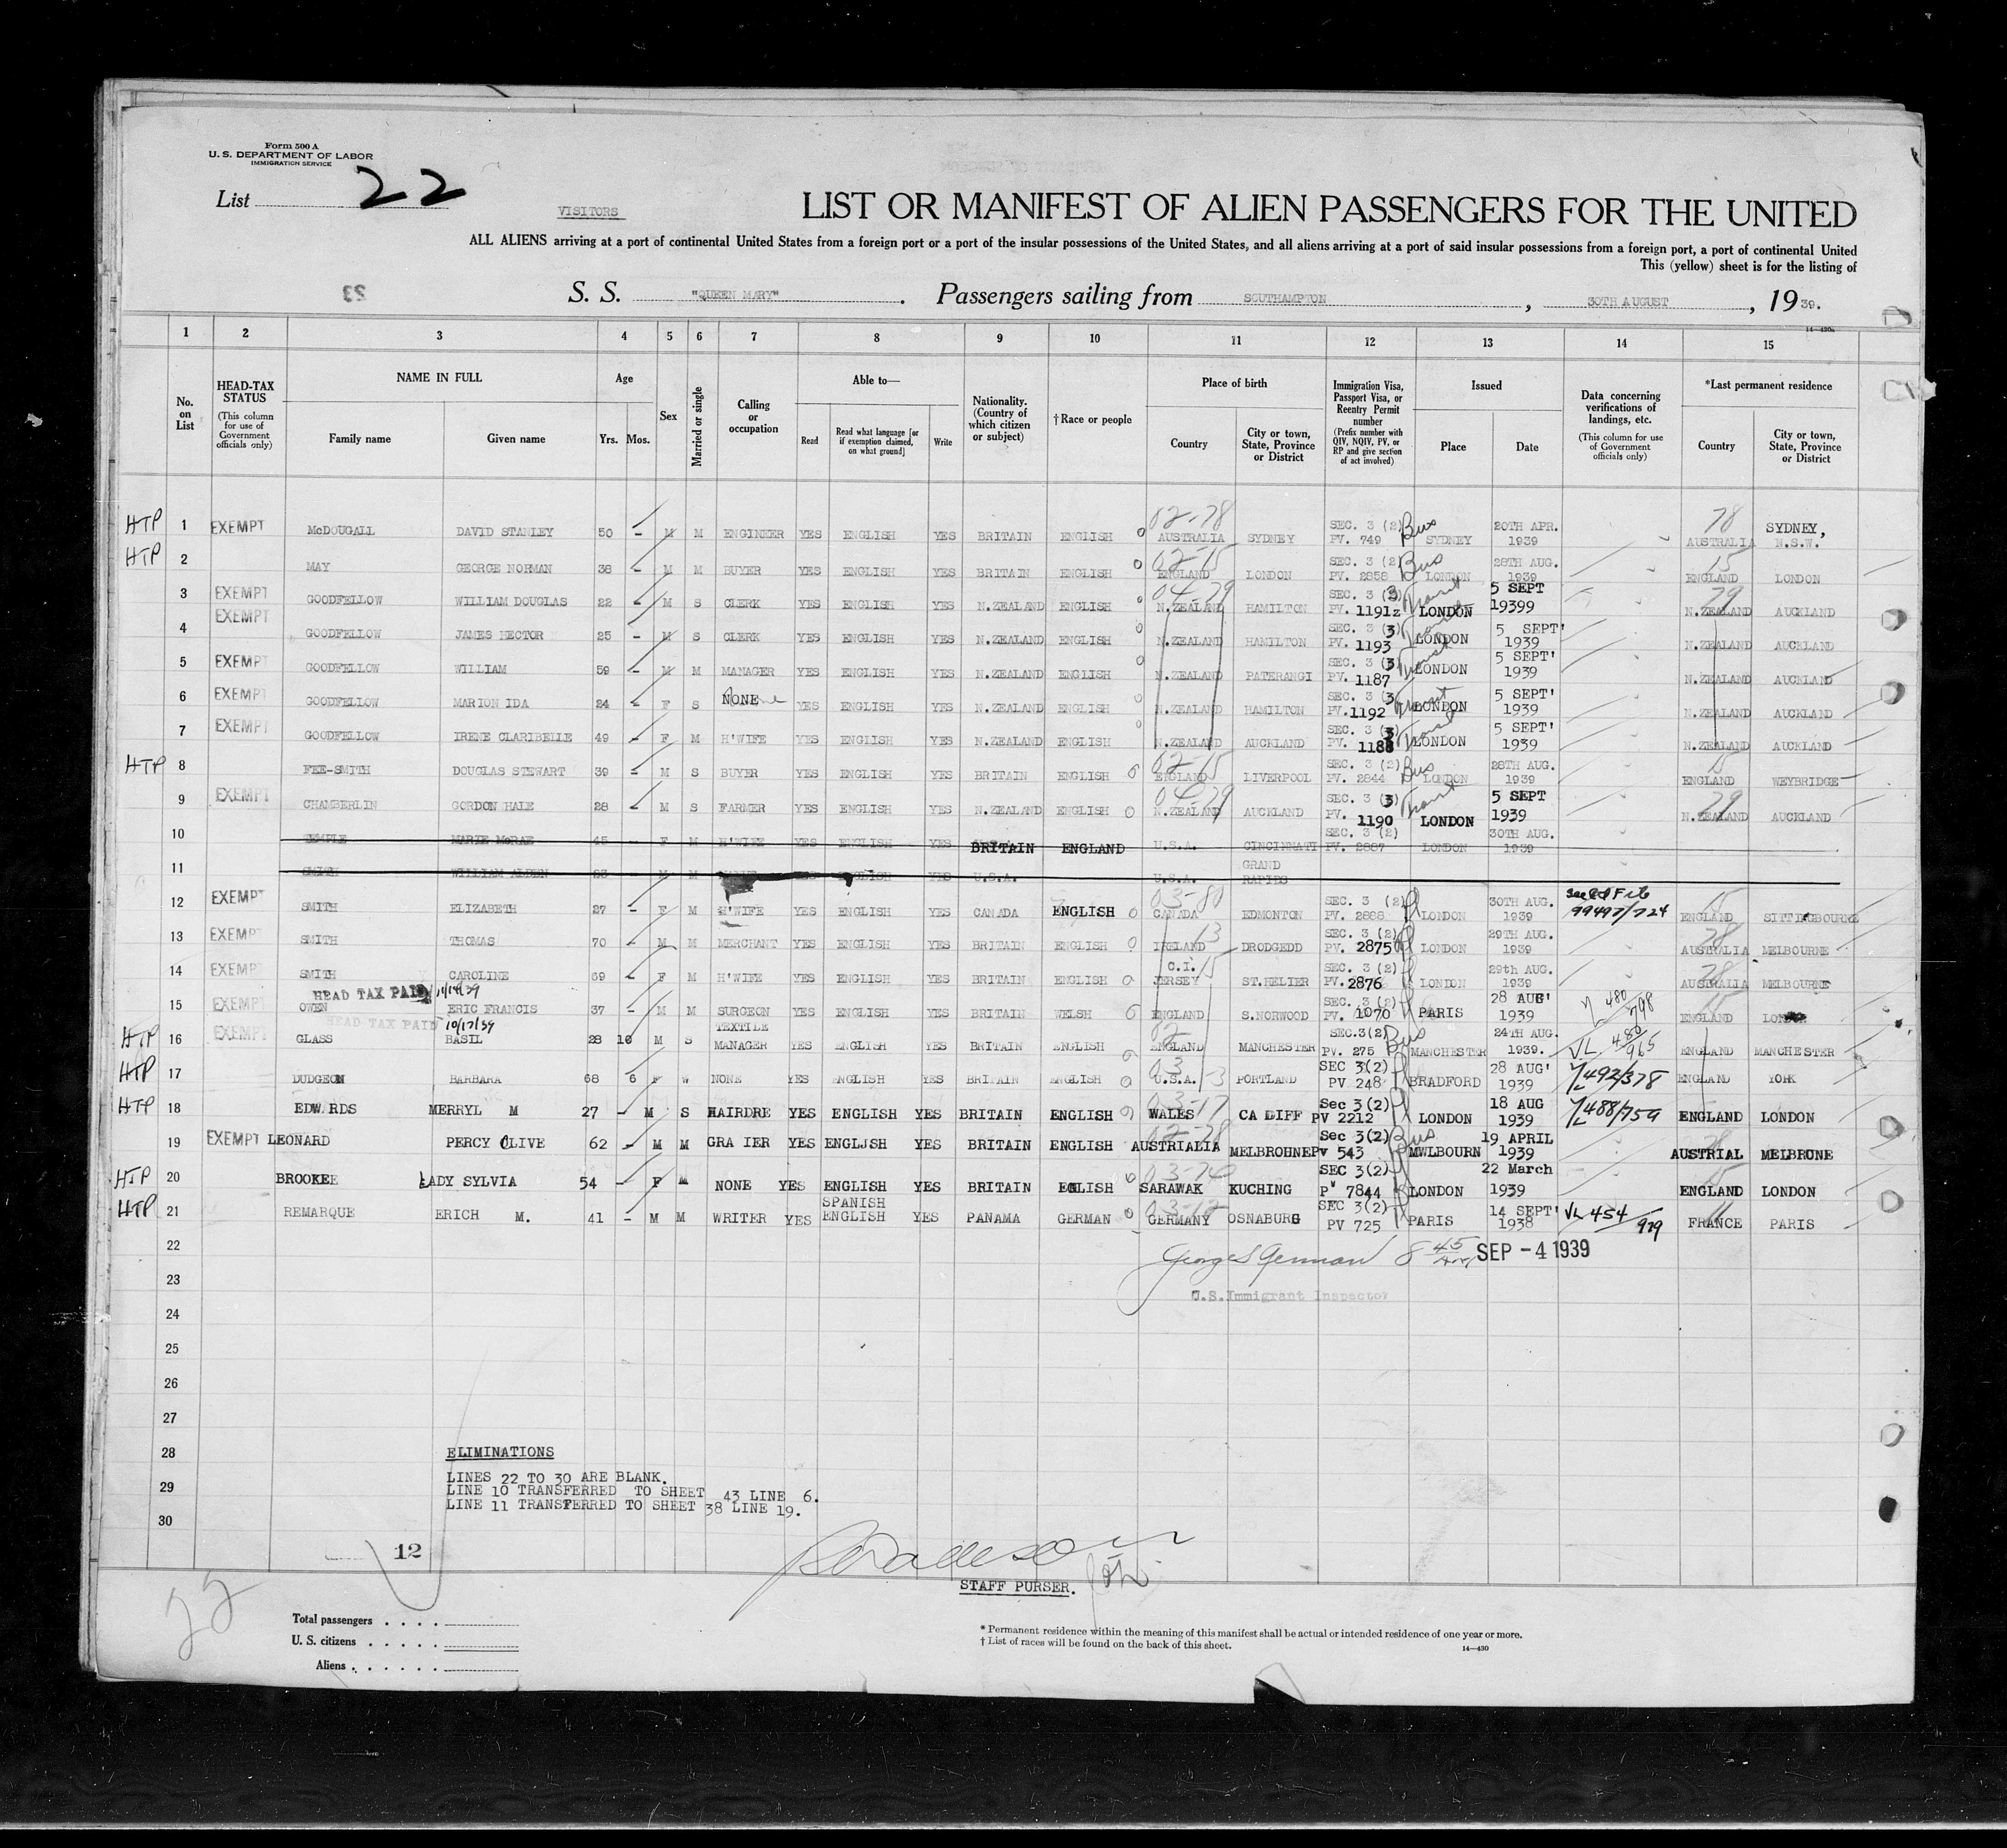 Form 500 A
U. S. DEPARTMENT OF LABOR
IMMIGRATION SERVICE
List 22
VISITORS
LIST OR MANIFEST OF ALIEN PASSENGERS FOR THE UNITED
ALL ALIENS arriving at a port of continental United States from a foreign port or a port of the insular possessions of the United States, and all aliens arriving at a port of said insular possessions from a foreign port, a port of continental United
This (yellow) sheet is for the listing of
S. S. "QUEEN MARY". Passengers sailing from SOUTHAMPTON, 30TH AUGUST, 1939.
14-430a
1 2 3 4 5 6 7 8 9 10 11 12 13 14 15
No. on List
HEAD-TAX STATUS (This column for use of Government officials only)
NAME IN FULL
Family name Given name
Age
Yrs. Mos.
Sex
Married or single
Calling or occupation
Able to—
Read
Read what language [or if exemption claimed, on what ground]
Write
Nationality. (Country of which citizen or subject)
†Race or people
Place of birth
Country
City or town, State, Province or District
Immigration Visa, Passport Visa, or Reentry Permit number (Prefix number with QIV, NQIV, PV, or RP and give section of act involved)
Issued
Place Date
Data concerning verifications of landings, etc. (This column for use of Government officials only)
*Last permanent residence
Country
City or town, State, Province or District
HTP 1 EXEMPT McDOUGALL DAVID STANLEY 50 - M M ENGINEER YES ENGLISH YES BRITAIN ENGLISH 02-78 AUSTRALIA SYDNEY SEC. 3 (2) PV. 749 Bus SYDNEY 20TH APR. 1939 78 AUSTRALIA SYDNEY, N.S.W.
HTP 2 MAY GEORGE NORMAN 38 - M M BUYER YES ENGLISH YES BRITAIN ENGLISH 02-15 ENGLAND LONDON SEC. 3 (2) PV. 2858 Bus LONDON 28TH AUG. 1939 15 ENGLAND LONDON
3 EXEMPT GOODFELLOW WILLIAM DOUGLAS 22 - M S CLERK YES ENGLISH YES N.ZEALAND ENGLISH 04-29 N.ZEALAND HAMILTON SEC. 3 (3) PV. 1191z Transit LONDON 5 SEPT 19399 29 N.ZEALAND AUCKLAND
4 EXEMPT GOODFELLOW JAMES HECTOR 25 - M S CLERK YES ENGLISH YES N.ZEALAND ENGLISH N.ZEALAND HAMILTON SEC. 3 (3) PV. 1193 Transit LONDON 5 SEPT' 1939 N.ZEALAND AUCKLAND
5 EXEMPT GOODFELLOW WILLIAM 59 - M M MANAGER YES ENGLISH YES N.ZEALAND ENGLISH N.ZEALAND PATERANGI SEC. 3 (3) PV. 1187 Transit LONDON 5 SEPT' 1939 N.ZEALAND AUCKLAND
6 EXEMPT GOODFELLOW MARION IDA 24 - F S NONE YES ENGLISH YES N.ZEALAND ENGLISH N.ZEALAND HAMILTON SEC. 3 (3) PV. 1192 Transit LONDON 5 SEPT' 1939 N.ZEALAND AUCKLAND
7 EXEMPT GOODFELLOW IRENE CLARIBELLE 49 - F M H'WIFE YES ENGLISH YES N.ZEALAND ENGLISH N.ZEALAND AUCKLAND SEC. 3 (3) PV. 1188 Transit LONDON 5 SEPT' 1939 N.ZEALAND AUCKLAND
HTP 8 FEE-SMITH DOUGLAS STEWART 39 - M S BUYER YES ENGLISH YES BRITAIN ENGLISH 02-15 ENGLAND LIVERPOOL SEC. 3 (2) PV. 2844 Bus LONDON 28TH AUG. 1939 15 ENGLAND WEYBRIDGE
9 EXEMPT CHAMBERLIN GORDON HALE 28 - M S FARMER YES ENGLISH YES N.ZEALAND ENGLISH 04-29 N.ZEALAND AUCKLAND SEC. 3 (3) PV. 1190 Transit LONDON 5 SEPT 1939 29 N.ZEALAND AUCKLAND
10 TEMPLE MARIE McRAE 45 - F M H'WIFE YES ENGLISH YES BRITAIN ENGLAND U.S.A. CINCINNATI SEC. 3 (2) PV. 2887 LONDON 30TH AUG. 1939
11 SMITH WILLIAM ALDEN 63 M M U.S.A. U.S.A. GRAND RAPIDS
12 EXEMPT SMITH ELIZABETH 27 - F M H'WIFE YES ENGLISH YES CANADA ENGLISH 03-80 CANADA EDMONTON SEC. 3 (2) PV. 2888 LONDON 30TH AUG. 1939 99497/724 15 ENGLAND SITTINGBOURNE
13 EXEMPT SMITH THOMAS 70 - M M MERCHANT YES ENGLISH YES BRITAIN ENGLISH 13 IRELAND DRODGEDD SEC. 3 (2) PV. 2875 LONDON 29TH AUG. 1939 78 AUSTRALIA MELBOURNE
14 EXEMPT SMITH CAROLINE 69 - F M H'WIFE YES ENGLISH YES BRITAIN ENGLISH C.I. 15 JERSEY ST.HELIER SEC. 3 (2) PV. 2876 LONDON 29th AUG. 1939 78 AUSTRALIA MELBOURNE
HEAD TAX PAID
15 EXEMPT OWEN ERIC FRANCIS 37 - M M SURGEON YES ENGLISH YES BRITAIN WELSH ENGLAND S.NORWOOD SEC. 3 (2) PV. 1070 PARIS 28 AUG' 1939 480/798 15 ENGLAND LONDON
HEAD TAX PAID 10/17/39
HTP 16 EXEMPT GLASS BASIL 28 10 M S TEXTILE MANAGER YES ENGLISH YES BRITAIN ENGLISH 02 ENGLAND MANCHESTER SEC.3(2) PV. 275 Bus MANCHESTER 24TH AUG. 1939. VL 480/965 ENGLAND MANCHESTER
HTP 17 DUDGEON BARBARA 68 6 F W NONE YES ENGLISH YES BRITAIN ENGLISH 03 U.S.A. PORTLAND SEC 3(2) PV 248 BRADFORD 28 AUG' 1939 VL 492/378 ENGLAND YORK
HTP 18 EDWARDS MERRYL M 27 - M S HAIRDRE YES ENGLISH YES BRITAIN ENGLISH 03-17 WALES CA DIFF Sec 3(2) PV 2212 LONDON 18 AUG 1939 VL 488/759 ENGLAND LONDON
19 EXEMPT LEONARD PERCY OLIVE 62 - M M GRA IER YES ENGLJSH YES BRITAIN ENGLISH 02-78 AUSTRIALIA MELBROHNE Sec 3(2) Pv 543 Bus MWLBOURN 19 APRIL 1939 78 AUSTRIAL MELBRUNE
HTP 20 BROOKEE LADY SYLVIA 54 - F M NONE YES ENGLISH YES BRITAIN ENGLISH 03-74 SARAWAK KUCHING SEC 3(2) PV 7844 LONDON 22 March 1939 15 ENGLAND LONDON
HTP 21 REMARQUE ERICH M. 41 - M M WRITER YES SPANISH ENGLISH YES PANAMA GERMAN 03-12 GERMANY OSNABURG SEC 3(2) PV 725 PARIS 14 SEPT' 1938 VL 454/979 11 FRANCE PARIS
22 George S German 8 45 SEP -4 1939
23
U.S.Immigrant Inspector
24
25
26
27
28 ELIMINATIONS
LINES 22 TO 30 ARE BLANK.
29 LINE 10 TRANSFERRED TO SHEET 43 LINE 6.
LINE 11 TRANSFERRED TO SHEET 38 LINE 19.
30
12
STAFF PURSER.
22
Total passengers . . . .
U. S. citizens . . . . .
Aliens . . . . . .
* Permanent residence within the meaning of this manifest shall be actual or intended residence of one year or more.
† List of races will be found on the back of this sheet.
14-430